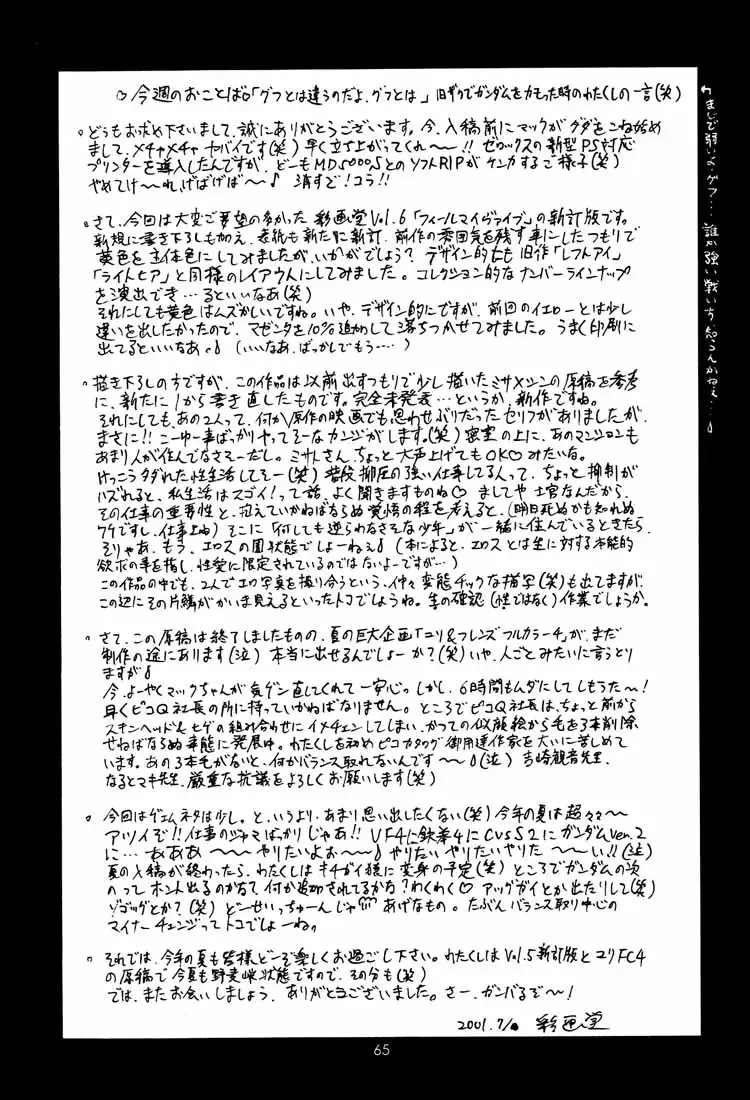 ♡今週のおことば♡「グフとは違うのだよ、グフとは」旧ザクでガンダムをカモった時のわたくしの一言(笑)
◦どうもお求め下さいまして、誠にありがとうございます。今、入稿前にマックがグダをこね始め
まして、メチャメチャヤバイです(笑)早く立ち上がってくれ〜〜!!ゼロックスの新型PS対応
プリンターを導入したんですが、どーもMD5000,SとのソフトRIPがケンカするご様子(笑)
やめてけ〜れ、げばげば〜♪消すぞ!コラ!!
◦さて、今回は大変ご要望の多かった彩画堂Vol.6「フィールマイヴァイブ」の新訂版です。
新規に書き下ろしも加え、表紙も新たに新訂、前作の雰囲気を残す事にしたつもりで
黄色を主体色にしてみましたが、いかがでしょう?デザイン的にも旧作「レフトアイ」
「ライトヒア」と同様のレイアウトにしてみました。コレクション的なナンバーラインナップ
を演出でき…るといいなあ(笑)
それにしても黄色はムズかしいですね。いや、デザイン的にですが、前回のイエローとは少し
違いを出したかったので、マゼンタを10%追加して落ちつかせてみました。うまく印刷に
出てるといいなあ。♪(いいなあ、ばっかしでもう‥‥)
◦描き下ろしのちですが、この作品は以前出すつもりで少し描いたミサ×シンの原稿を参考
に、新たに1から書き直したものです。完全未発表…というか、新作ですね。
それにしても、あの2人って、何か原作の映画でも思わせぶりだったセリフがありましたが、
まさに!!こーゆー事ばっかりヤってそーなカンジがします。(笑)密室の上に、あのマンションも
あまり人が住んでなさそーだし。ミサトさん、ちょっと大声上げてもOK♡みたいな。
けっこうタダれた性生活してそー(笑)普段抑圧の強い仕事してる人って、ちょっと抑制が
ハズれると、私生活はスゴイ!って話、よく聞きますものね♡ましてや士官なんだから、
その仕事の重要性と、抱えていかねばならぬ覚悟の程を考えると、(明日死ぬかも知れぬ
ワケですし、仕事上ぬ)そこに「何しても逆らわなさそな少年」が一緒に住んでいるときたら、
そりゃあ、もう、エロスの園状態でしょーねぇ♪(本によると、エロスとは生に対する本能的
欲求の事を指し、性愛に限定されているのではないよーですが…)
この作品の中でも、2人でエロ写真を撮り合うという、仲々変態チックな描写(笑)も出てますが、
この辺にその片鱗がかいま見えるといったトコでしょうね。生の確認(性ではなく)作業でしょうか。
◦さて、この原稿は終了しましたものの、夏の巨大企画「ユリ&フレンズフルカラー4」が、まだ
制作の途にあります(泣)本当に出せるんでしょーか?(笑)いや、人ごとみたいに言うとり
ますが♪
今、よーやくマックちゃんが気ゲン直してくれて一安心。しかし、6時間もムダにしてしもうた〜!
早くピコQ社長の所に持っていかねばなりません。ところでピコQ社長は、ちょっと前から
スキンヘッド&ヒゲの組み合わせにイメチェンしてしまい、かつての似顔絵から毛を3本削除
せねばならぬ事態に発展中。わたくしを初めピコカタログ御用達作家を大いに苦しめて
います。あの3本毛がないと、何かバランス取れないんです〜〜♪(泣)吉崎観音先生、
なるとマキ先生、厳重な抗議をよろしくお願いします(笑)
◦今回はゲェムネタは少し。と、いうより、あまり思い出したくない(笑)今年の夏は超々々〜
アツイぞ!!仕事のジャマばっかりじゃあ!!VF4に鉄拳4にCVSS2にガンダムVer.2
に…ああああ〜〜〜やりたいよお〜〜♪やりたいやりたいやりた〜〜い!!(泣)
夏の入稿が終わったら、わたくしはキチガイ猿に変身の予定(笑)ところでガンダムの次
のってホント出るのかな?何か追加されてるかな?わくわく♡アッグガイとか出たりして(笑)
ゾゴッグとか?(笑)どーせいっちゅーんじゃ あげなもの。たぶんバランス取り中心の
マイナーチェンジってトコでしょーね。
◦それでは、今年の夏も皆様どーぞ楽しくお過ごし下さい。わたくしはVol.5新訂版とユリFC4
の原稿で今夏も野麦峠状態ですので、その分も(笑)
では、またお会いしましょう、ありがとうございました。さー、ガンバるぞ〜!
2001.7/ 彩画堂
まじで弱いく、グフ…、誰か強い戦い方知らんかねえ…♪
65